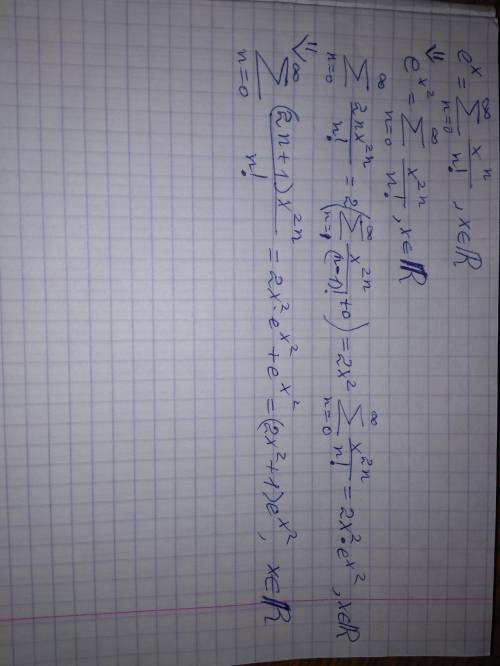 e^x = ∑_{n=0}^{∞} x^n / n! , x∈ℝ
⇓ e^{x^2} = ∑_{n=0}^{∞} x^{2n} / n! , x∈ℝ
∑_{n=0}^{∞} 2n x^{2n} / n! = 2(∑_{n=1}^{∞} x^{2n} / (n-1)! + 0) = 2x^2 ∑_{n=0}^{∞} x^{2n} / n! = 2x^2 · e^{x^2} , x∈ℝ
⇓ ∑_{n=0}^{∞} (2n+1)x^{2n} / n! = 2x^2 · e^{x^2} + e^{x^2} = (2x^2+1)e^{x^2} , x∈ℝ